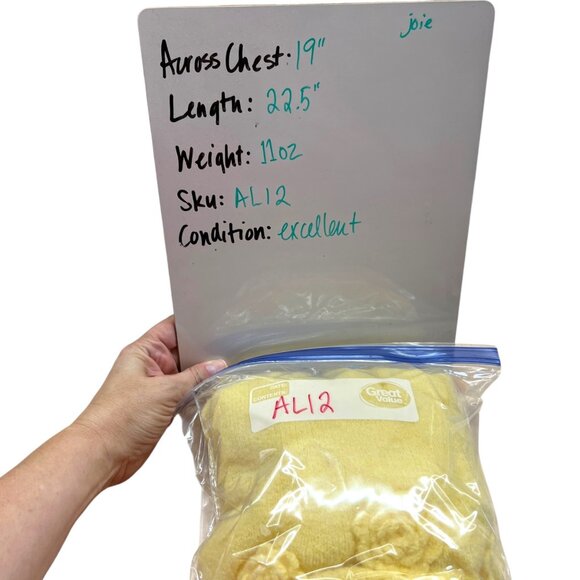 joie
Across Chest: 19"
Length: 22.5"
Weight: 11oz
Sku: AL12
Condition: excellent
DATE:
CONTENTS:
AL12
Great
Value